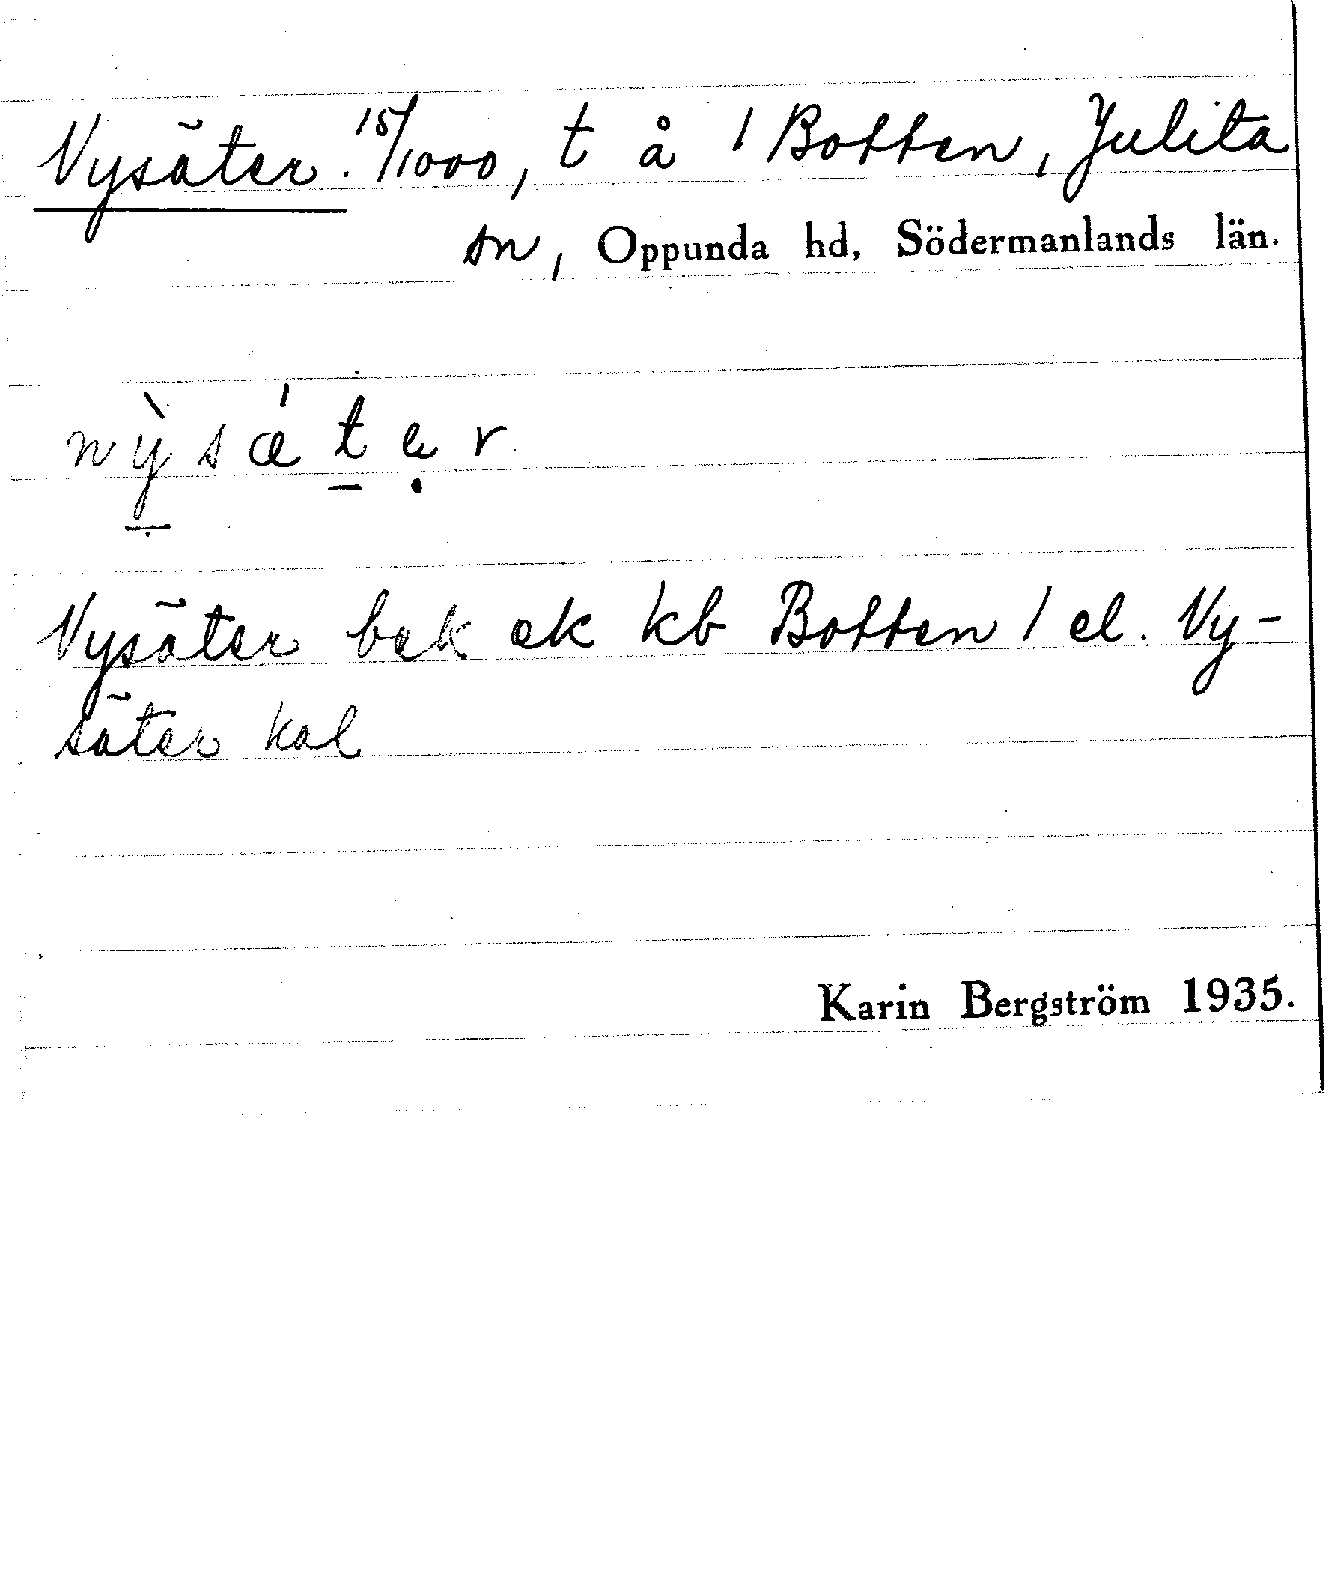 Nysäter. 15/1000, t å 1 Botten, Julita
sn, Oppunda hd, Södermanlands län.
nỳsætẹr
Nysäter bek ek kb Botten 1 el. Ny-
säter kal
Karin Bergström 1935.